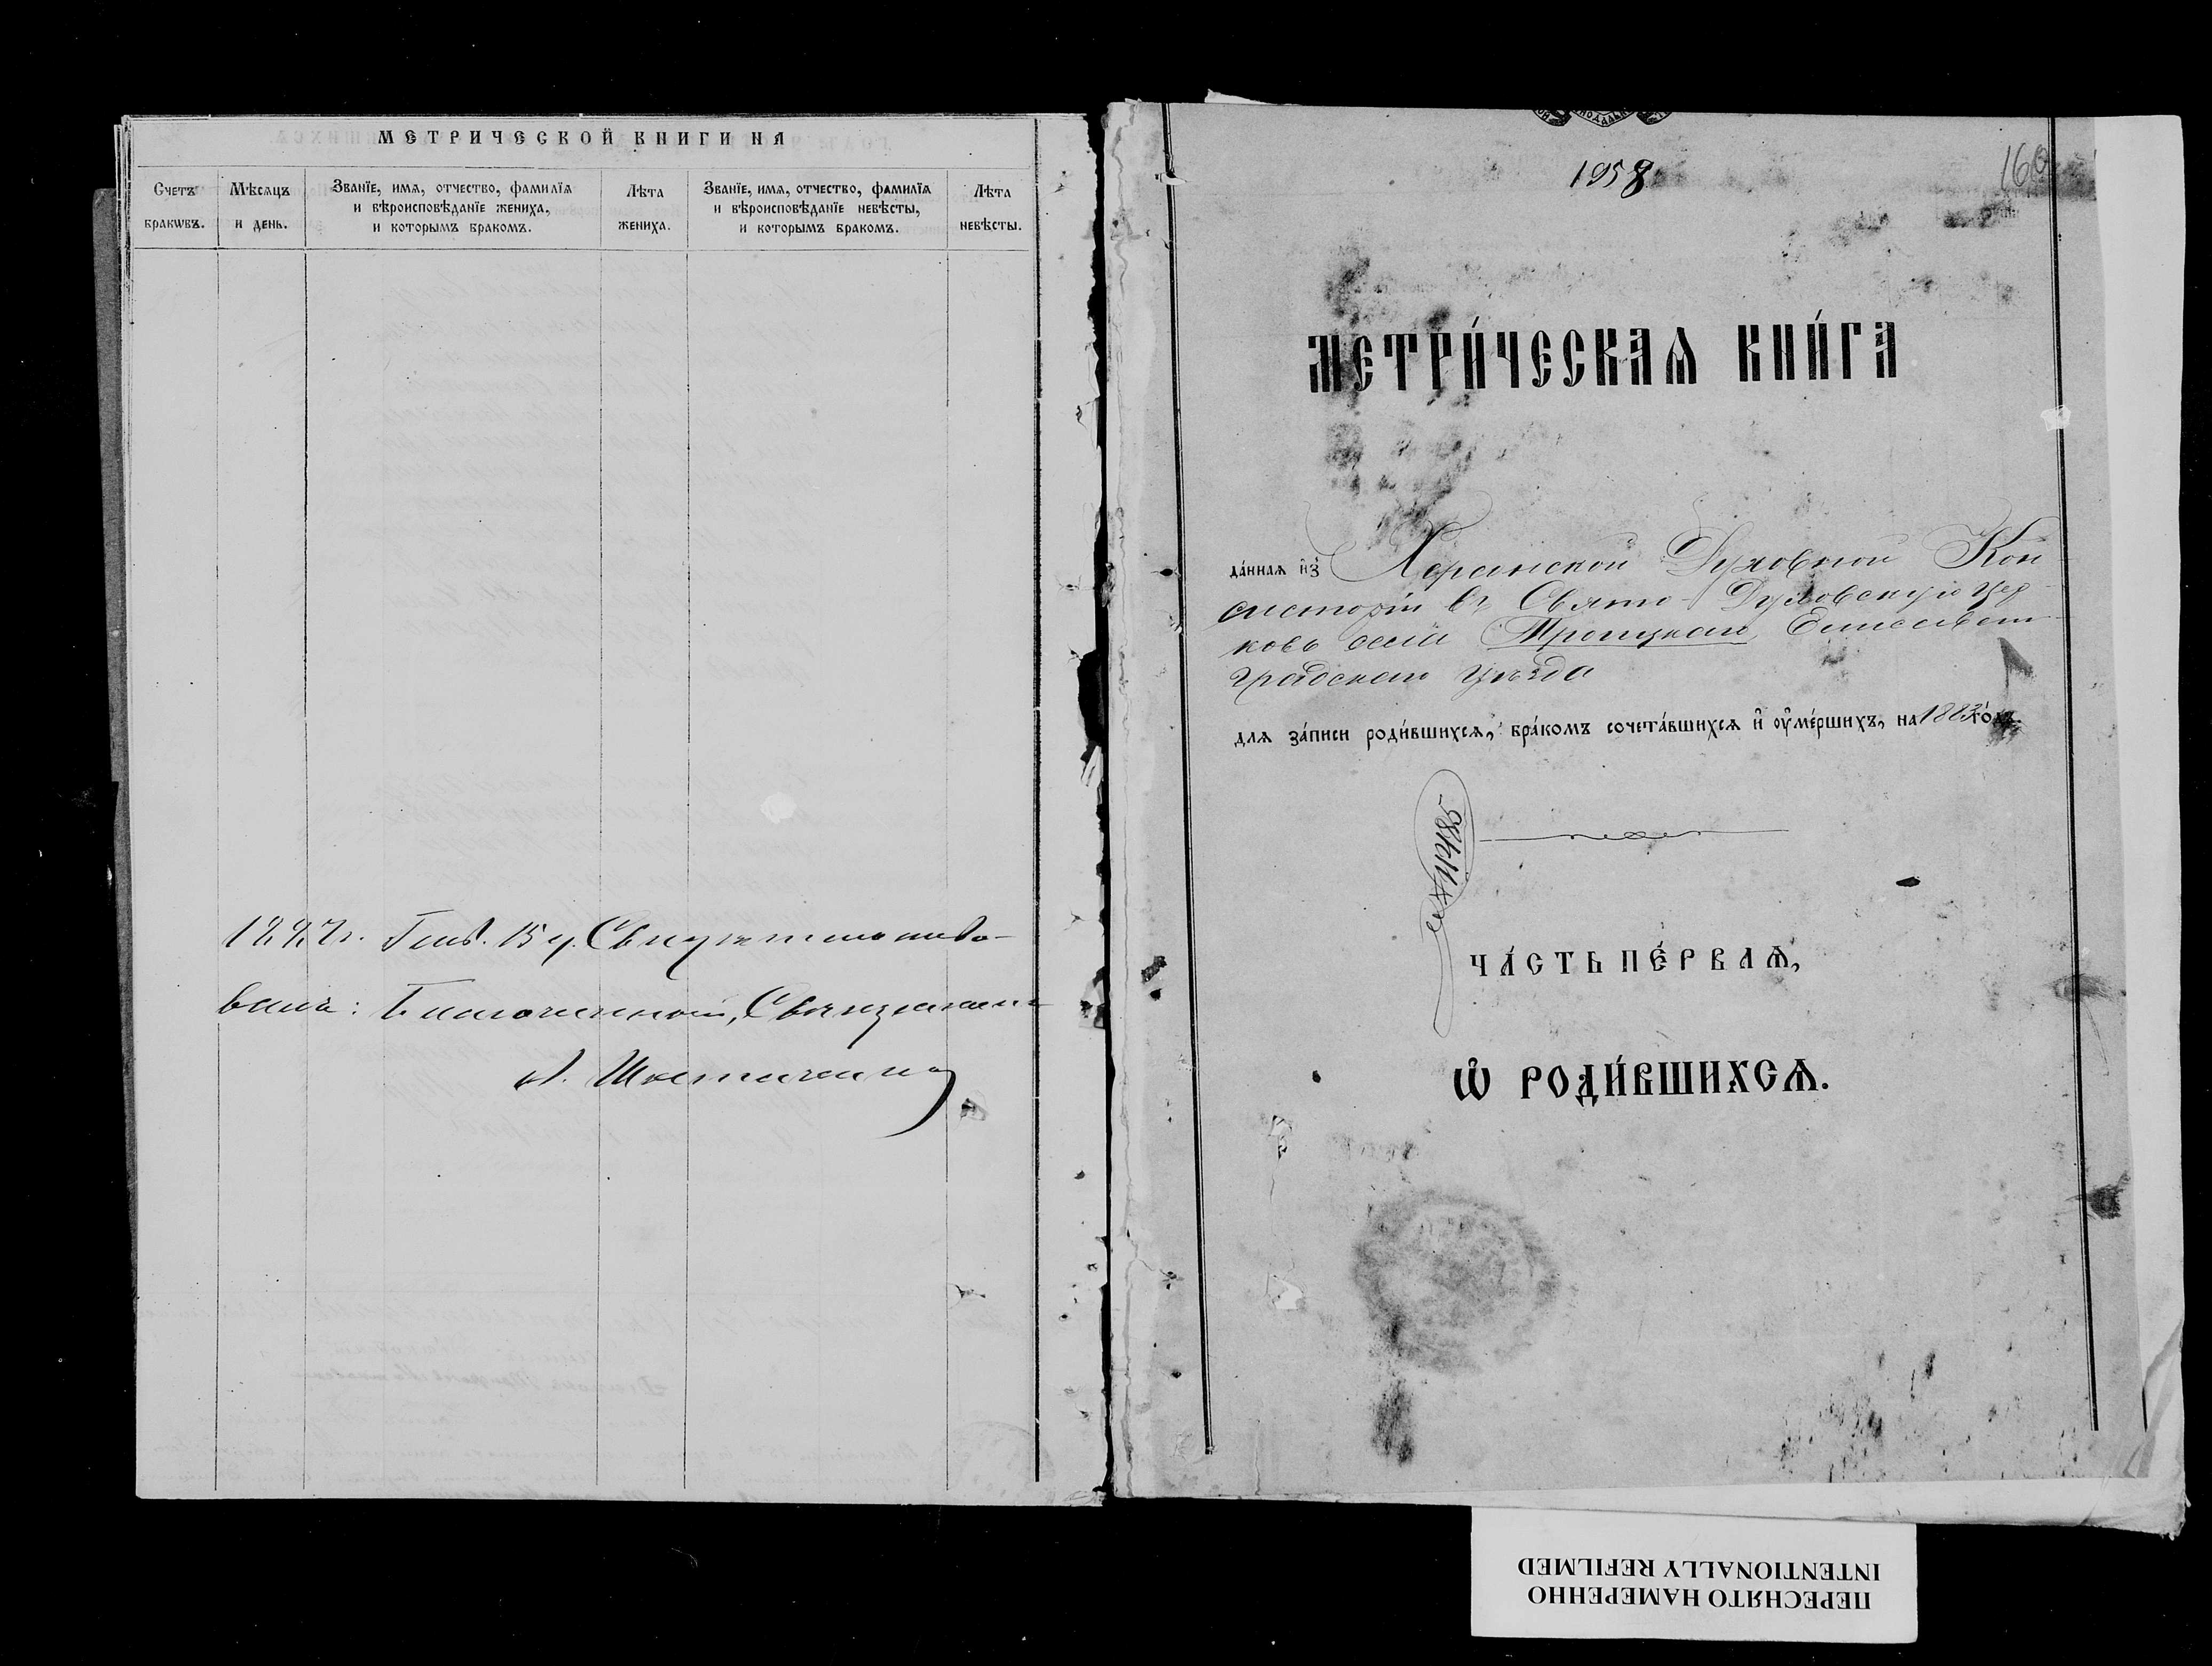 МЕТРИЧЕСКОЙ КНИГИ НА
Счетъ браковъ.
Мѣсяцъ и день.
Званїе, имя, отчество, фамилїя
и вѣроисповѣданїе жениха,
и которымъ бракомъ.
Лѣта жениха.
Званїе, имя, отчество, фамилїя
и вѣроисповѣданїе невѣсты,
и которымъ бракомъ.
Лѣта невѣсты.
15 ч. Свидѣтельство-
валъ: Благочинный, Священникъ
1958
160
МЕТРИ́ЧЕСКАѦ КНИ́ГА
да́нная и҆з̾ Херсонской Духовной Кон
систорiи въ Свято-Духовскую цер-
ковь села Троицкаго, Елисавет-
градскаго уѣзда
для за́писи роди́вшихся, бра́комъ сочета́вшихся и҆ оу҆ме́ршихъ, на 1883 го́дъ.
ЧА́СТЬ ПЕ́РВАѦ,
Ѡ҆ РОДИ́ВШИХСѦ.
ПЕРЕСНЯТО НАМЕРЕННО
INTENTIONALLY REFILMED